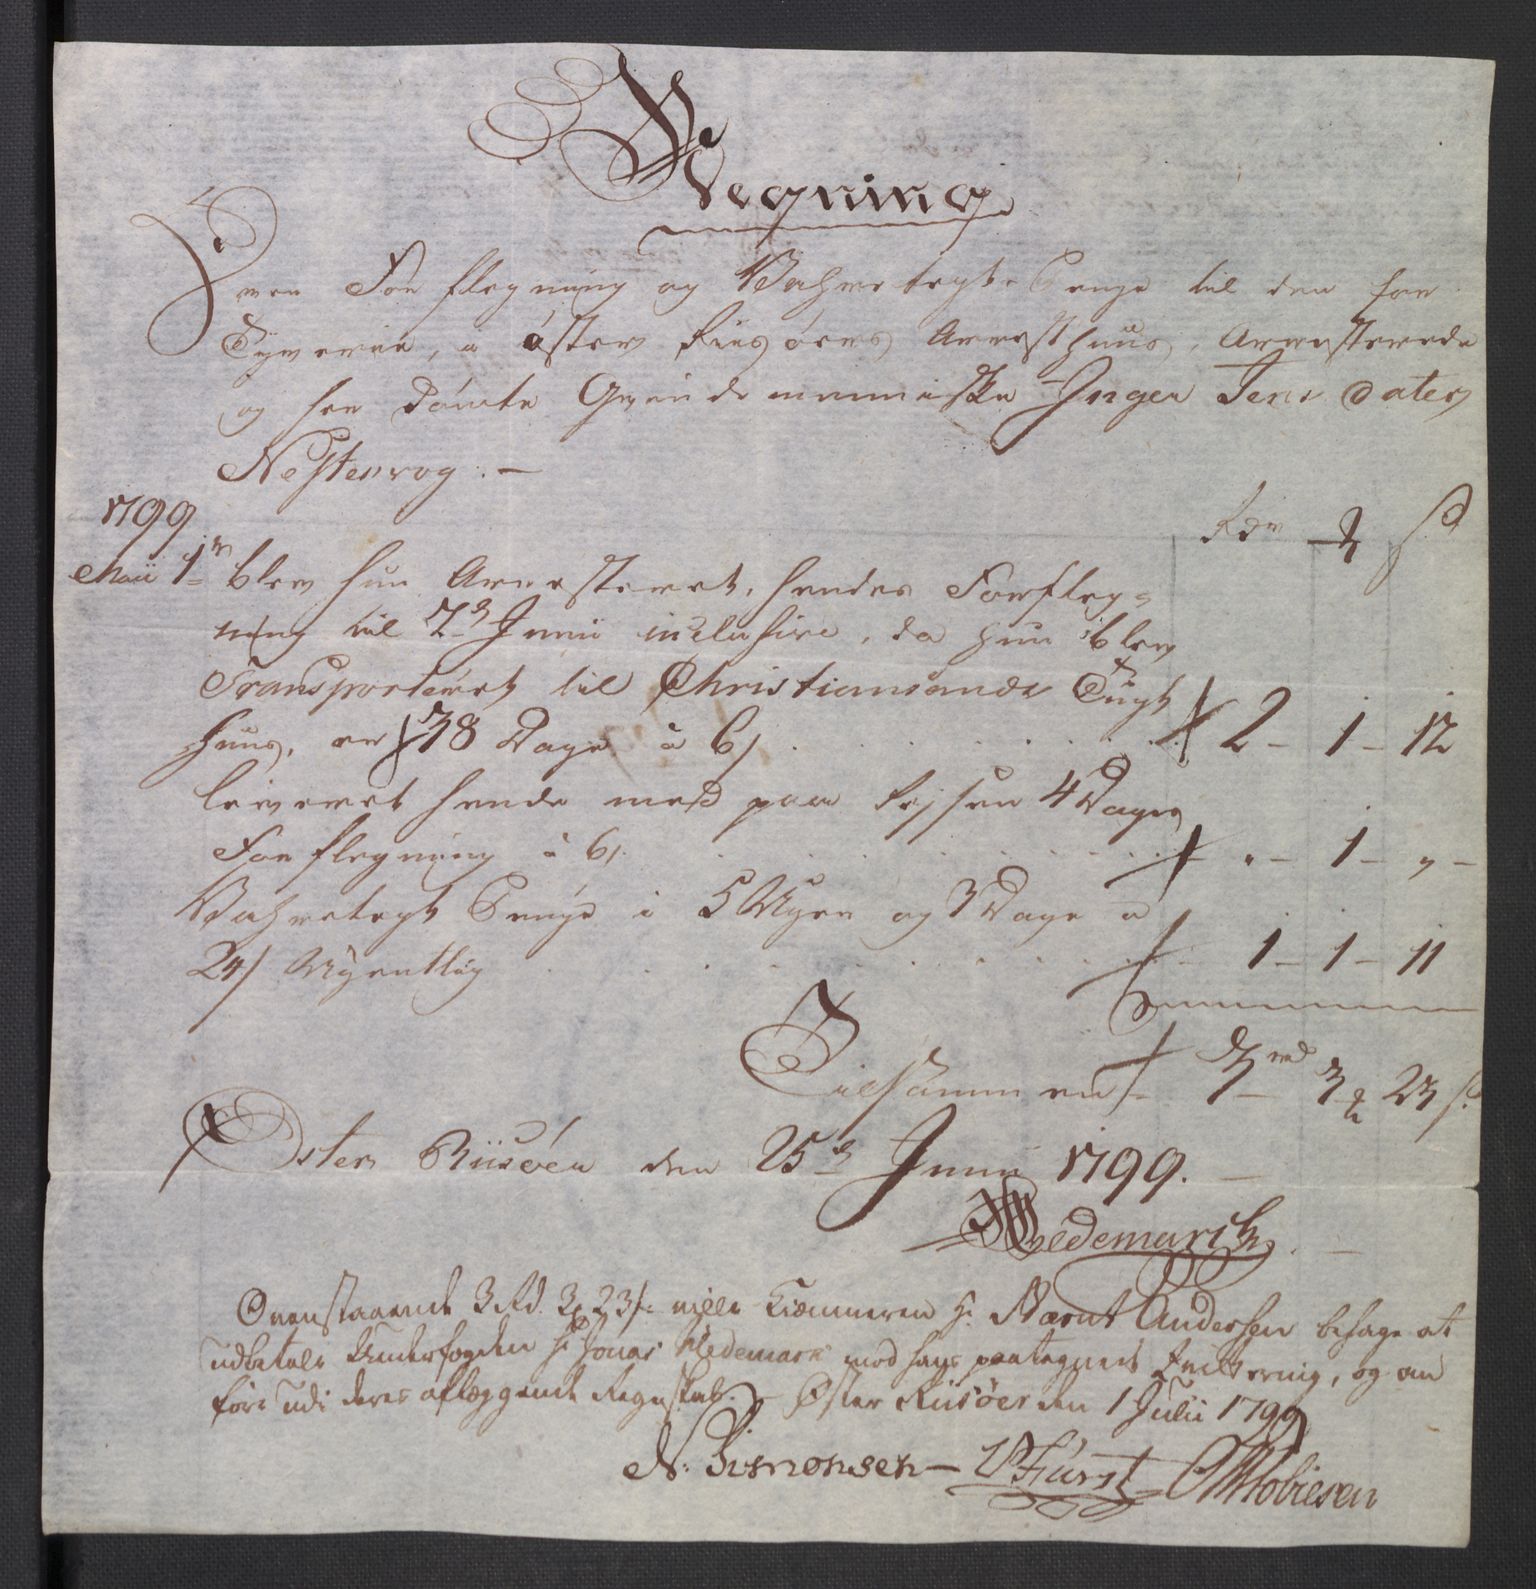 Regning
Over Forflegning og Vahretegts Penge til den for
Tyverie, i Øster Riisöers Arresthuus, Arresterede
og her Dömte Qvindemenniske Inger Jens Dater
Nestenvog. —
1799 Rdr ß
Maii 1te blev hun Arresteret, hendes Forfleg-
ning til 7de Junii inclusive, da hun blev
Transporteret til Christiansands Tugt
huus, er 38 Dage à 6ß . . . . 2 - 1 - 12
leveret hende med paa Rejsen 4 Dages
Forflegning à 6ß . . . . " - 1 - " -
Vahretegt Penge i 5 Uger og 3 Dage a
24ß Ugentlig . . . . 1 - 1 - 11
Tilsammen 3rd 3 23ß
Øster Riisöer den 25de Junii 1799.
Wedemarck
Ovenstaaende 3 Rd. 3 23ß ville Kiemneren Hr. Bernt Andersen behage at
udbetale Underfogden Hr Jonas Wedemark mod hans paategnede Qvittering, og an
före udi deres aflæggende Regnskab. - Øster Riisöer den 1 Julii 1799
N. Simonsen — Fürst Tobiesen